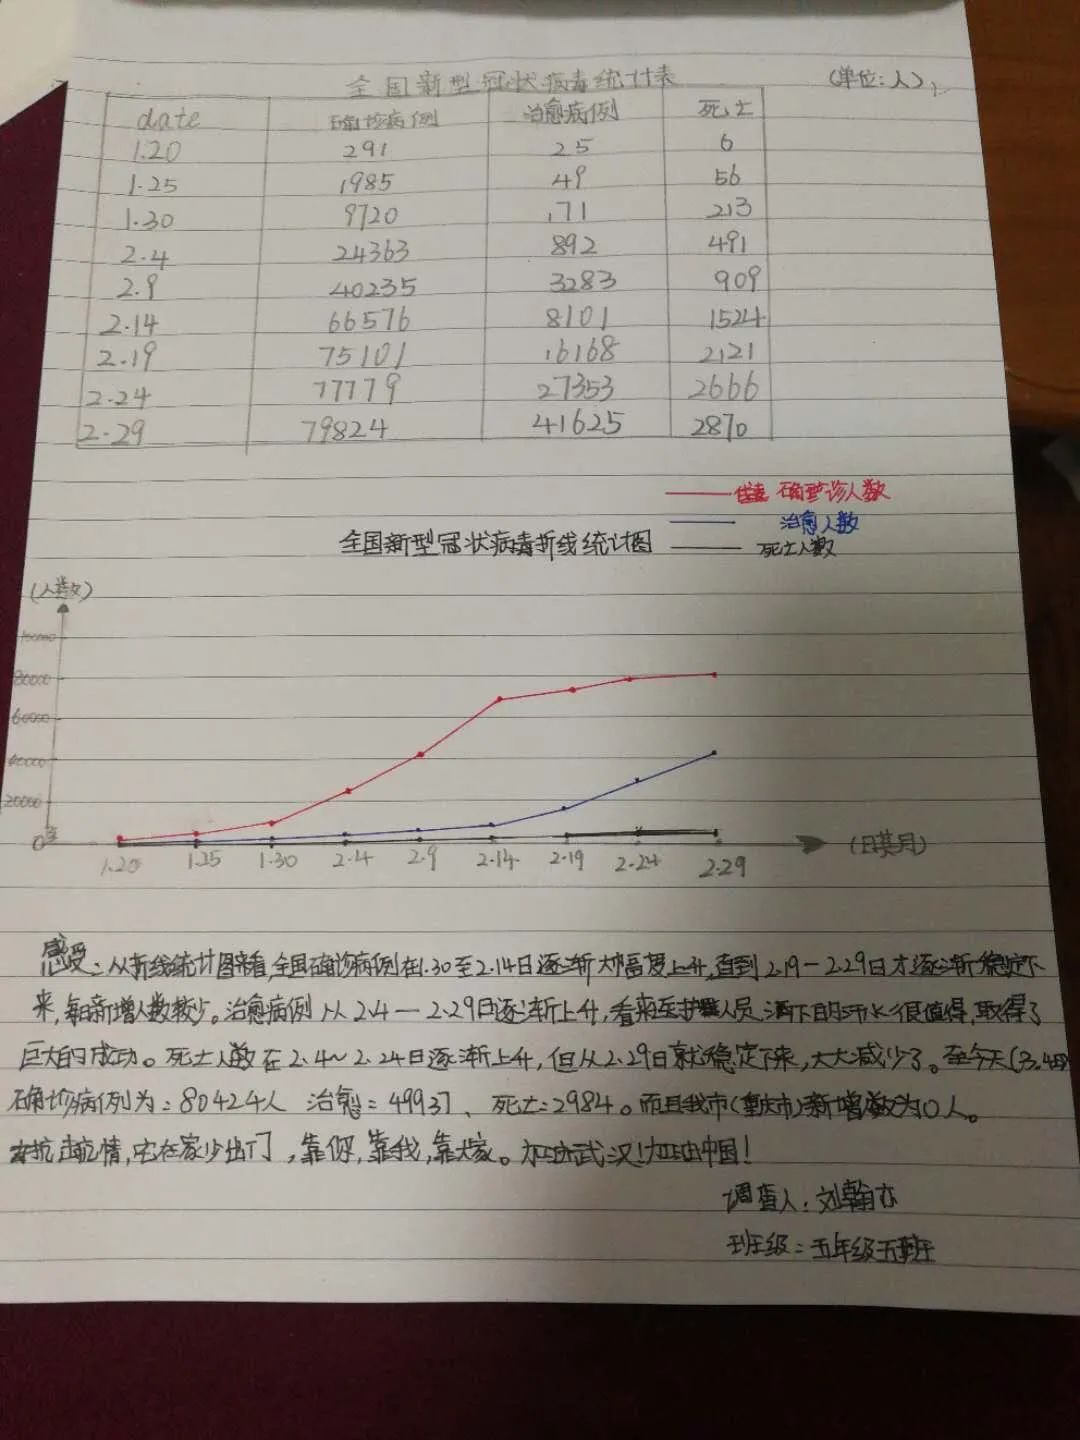 全国新型冠状病毒统计表 (单位:人)
date 确诊病例 治愈病例 死亡
1.20 291 25 6
1.25 1985 49 56
1.30 9720 171 213
2.4 24363 892 491
2.9 40235 3283 909
2.14 66576 8101 1524
2.19 75101 16168 2121
2.24 77779 27353 2666
2.29 79824 41625 2870
确诊人数
治愈人数
全国新型冠状病毒折线统计图 死亡人数
(人数)
100000
80000
60000
40000
20000
0
1.20 1.25 1.30 2.4 2.9 2.14 2.19 2.24 2.29 (日期)
感受:从折线统计图来看,全国确诊病例在1.30至2.14日逐渐大幅度上升,直到2.19—2.29日才逐渐稳定下
来,每日新增人数较少。治愈病例从2.4—2.29日逐渐上升,看来医护人员洒下的汗水很值得,取得了
巨大的成功。死亡人数在2.4~2.24日逐渐上升,但从2.29日就稳定下来,大大减少了。至今天(3.4日)
确诊病例为:80424人 治愈:49937、死亡:2984。而且我市(重庆市)新增数为0人。
抗疫情,宅在家少出门,靠你,靠我,靠大家。加油武汉!加油中国!
调查人:刘翰亦
班级:五年级五班